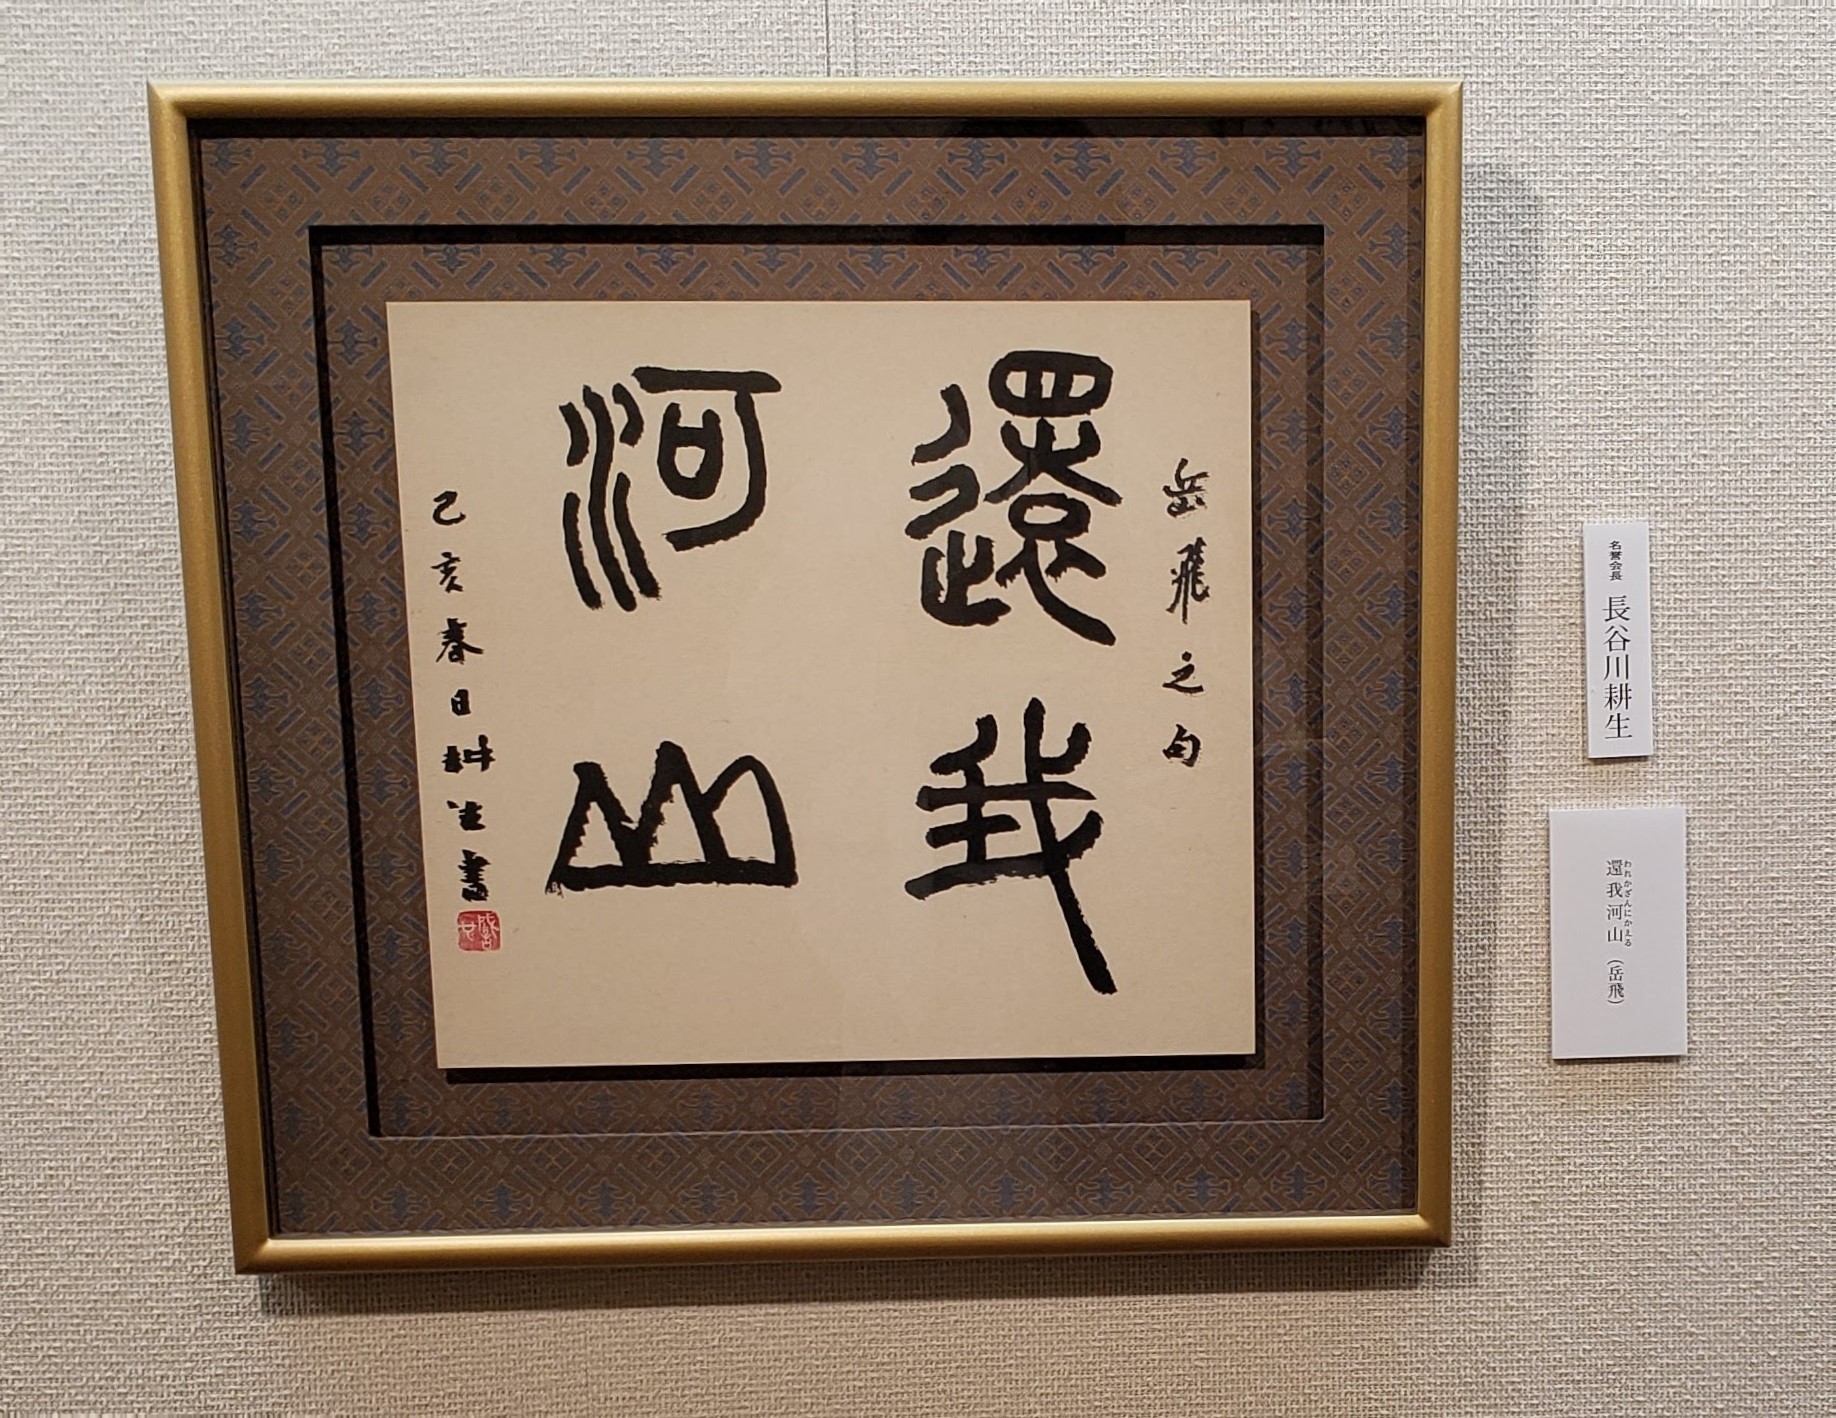 岳飛之句
還我
河山
己亥春日耕生書
名誉会長 長谷川耕生
還我河山(岳飛)
われかざんにかえる